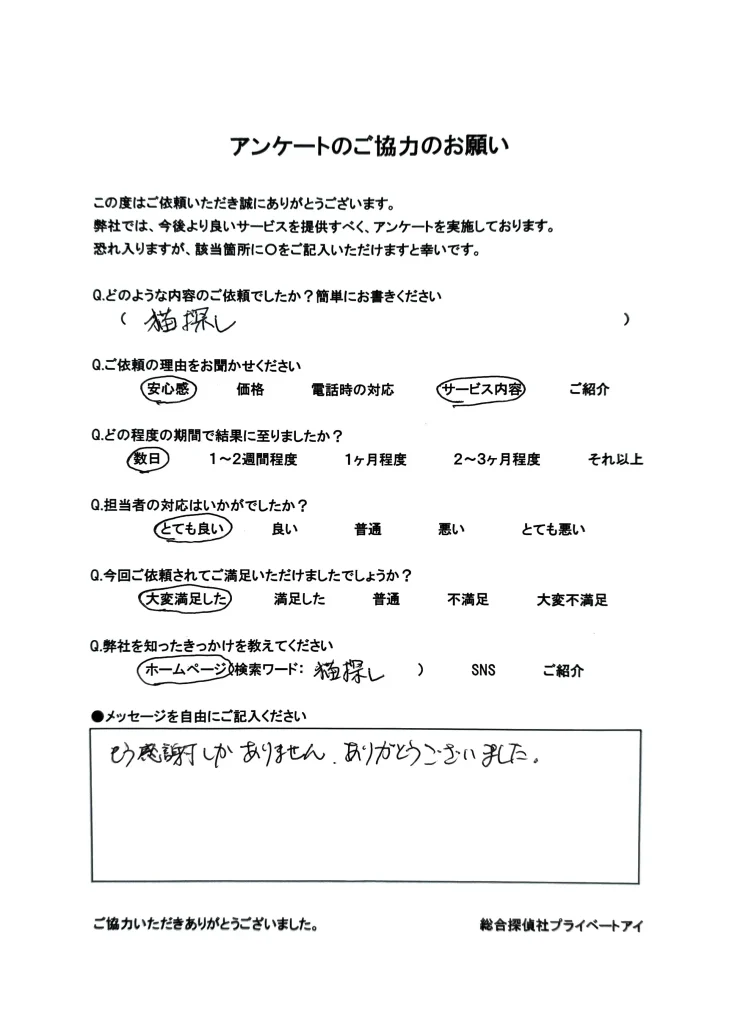 アンケートのご協力のお願い
この度はご依頼いただき誠にありがとうございます。
弊社では、今後より良いサービスを提供すべく、アンケートを実施しております。
恐れ入りますが、該当箇所に〇をご記入いただけますと幸いです。
Q.どのような内容のご依頼でしたか？簡単にお書きください
（ 猫探し ）
Q.ご依頼の理由をお聞かせください
安心感 価格 電話時の対応 サービス内容 ご紹介
Q.どの程度の期間で結果に至りましたか？
数日 1～2週間程度 1ヶ月程度 2～3ヶ月程度 それ以上
Q.担当者の対応はいかがでしたか？
とても良い 良い 普通 悪い とても悪い
Q.今回ご依頼されてご満足いただけましたでしょうか？
大変満足した 満足した 普通 不満足 大変不満足
Q.弊社を知ったきっかけを教えてください
ホームページ（検索ワード： 猫探し ） SNS ご紹介
●メッセージを自由にご記入ください
もう感謝しかありません。ありがとうございました。
ご協力いただきありがとうございました。 総合探偵社プライベートアイ